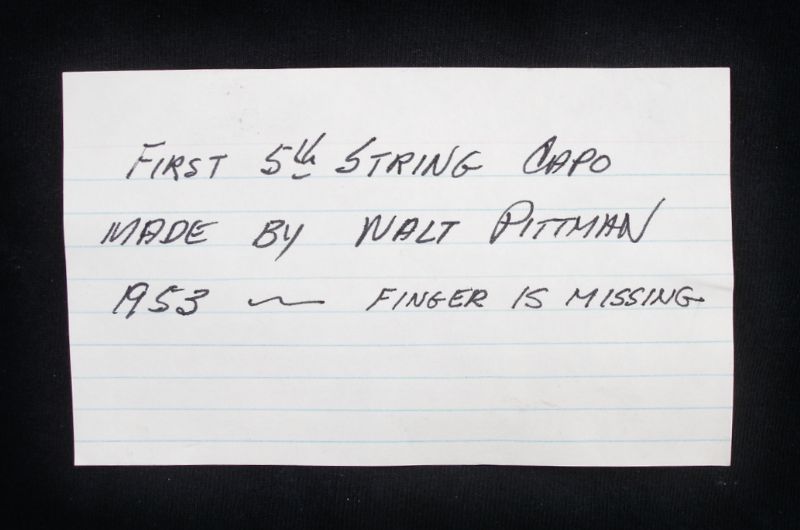 FIRST 5th STRING CAPO
MADE BY WALT PITTMAN
1953 — FINGER IS MISSING